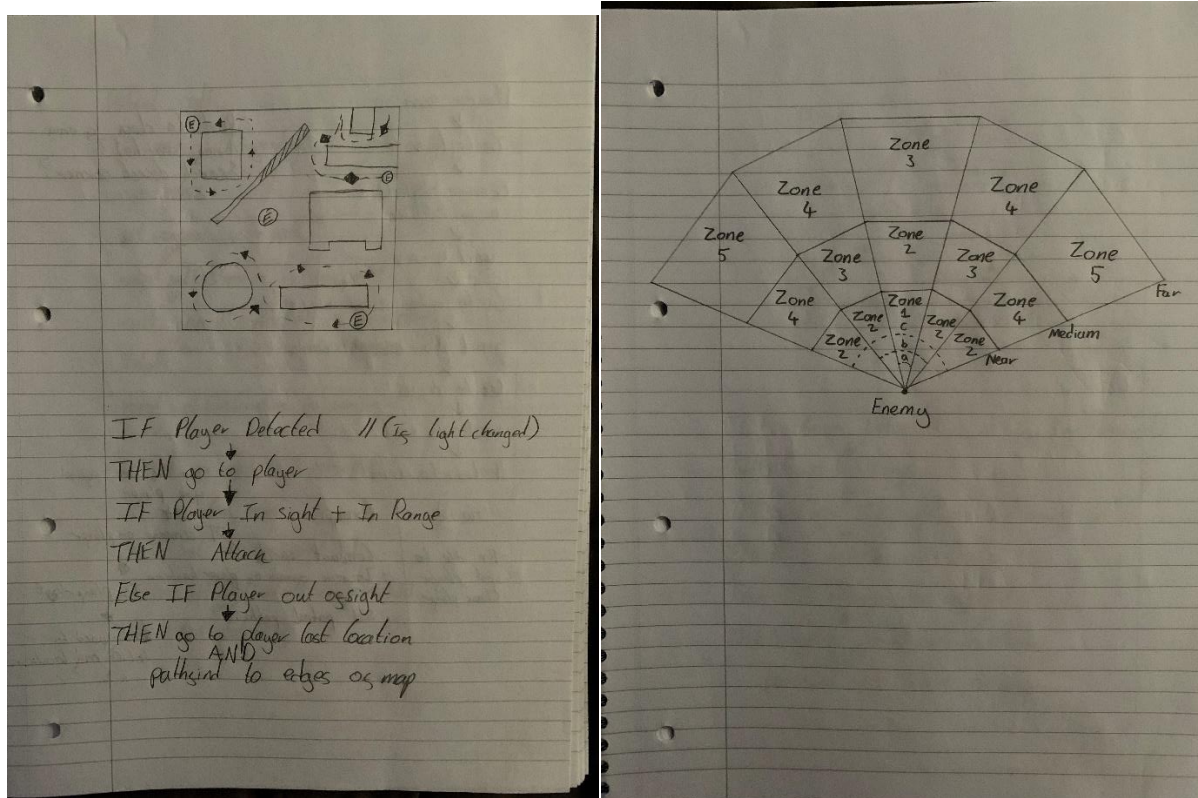 E
E
E
E
IF Player Detected // (Is light changed)
THEN go to player
IF Player In sight + In Range
THEN Attack
Else IF Player out of sight
THEN go to player last location
AND
pathfind to edges of map
Zone
3
Zone
4
Zone
4
Zone
5
Zone
2
Zone
5
Zone
3
Zone
3
Zone
4
Zone
4
Zone
1
Zone
2
Zone
2
Zone
2
Zone
2
c
b
a
Near
Medium
Far
Enemy